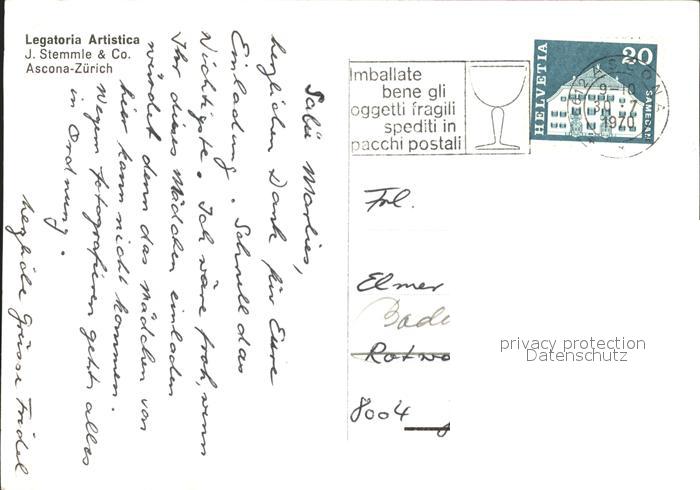 Legatoria Artistica
J. Stemmle & Co.
Ascona-Zürich
Salü Marlies,
herzlichen Dank für Eure
Einladung. Schnell das
Wichtigste. Ich wäre froh, wenn
Ihr dieses Mädchen einladen
würdet denn das Mädchen von
hier kann nicht kommen.
Wegen fotografieren geht alles
in Ordnung.
herzliche Grüsse Fridel
Imballate
bene gli
oggetti fragili
spediti in
pacchi postali
HELVETIA
20
SAMEDAN
ASCONA
9-10
30. 7
1970
Frl.
Elmer
Bade
Rotwa
8004
privacy protection
Datenschutz